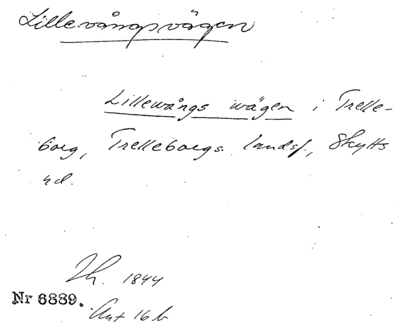 Lillevångsvägen
Lillewångs wägen i Trelle-
borg, Trelleborgs landsf., Skytts
hd.
Th. 1844
Nr 6889.
Ant 16 b